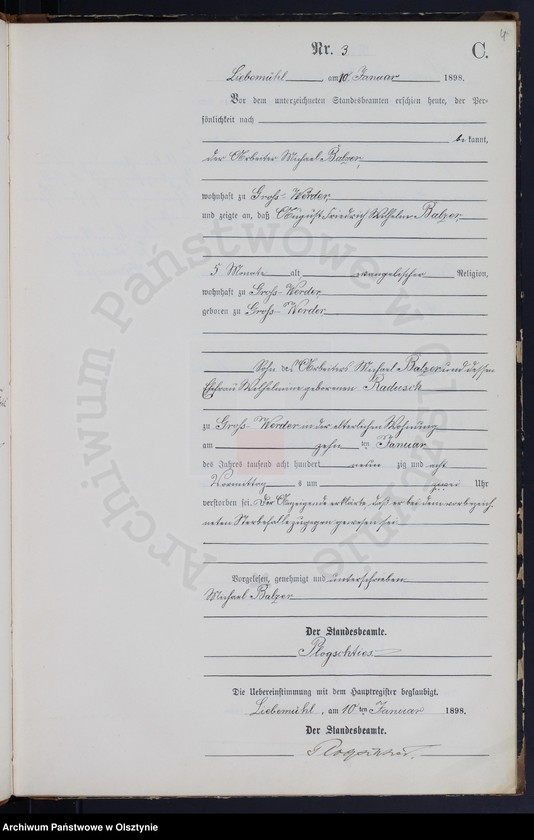 4
Nr. 3 C.
Liebemühl, am 10ten Januar 1898.
Vor dem unterzeichneten Standesbeamten erschien heute, der Per-
sönlichkeit nach
be kannt,
der Arbeiter Michael Balzer,
wohnhaft zu Groß-Werder,
und zeigte an, daß August Friedrich Wilhelm Balzer,
5 Monate alt, evangelischer Religion,
wohnhaft zu Groß-Werder,
geboren zu Groß-Werder,
Sohn des Arbeiters Michael Balzer und dessen
Ehefrau Wilhelmine geborenen Radusch
zu Groß-Werder in der elterlichen Wohnung
am zehn ten Januar
des Jahres tausend acht hundert neun zig und acht
Vormittags um zwei Uhr
verstorben sei. Der Anzeigende erklärte, daß er bei dem vorbezeich-
neten Sterbefalle zugegen gewesen sei.
Vorgelesen, genehmigt und unterschrieben
Michael Balzer
Der Standesbeamte.
Die Uebereinstimmung mit dem Hauptregister beglaubigt.
Liebemühl, am 10ten Januar 1898.
Der Standesbeamte.
Archiwum Państwowe w Olsztynie
Archiwum Państwowe w Olsztynie